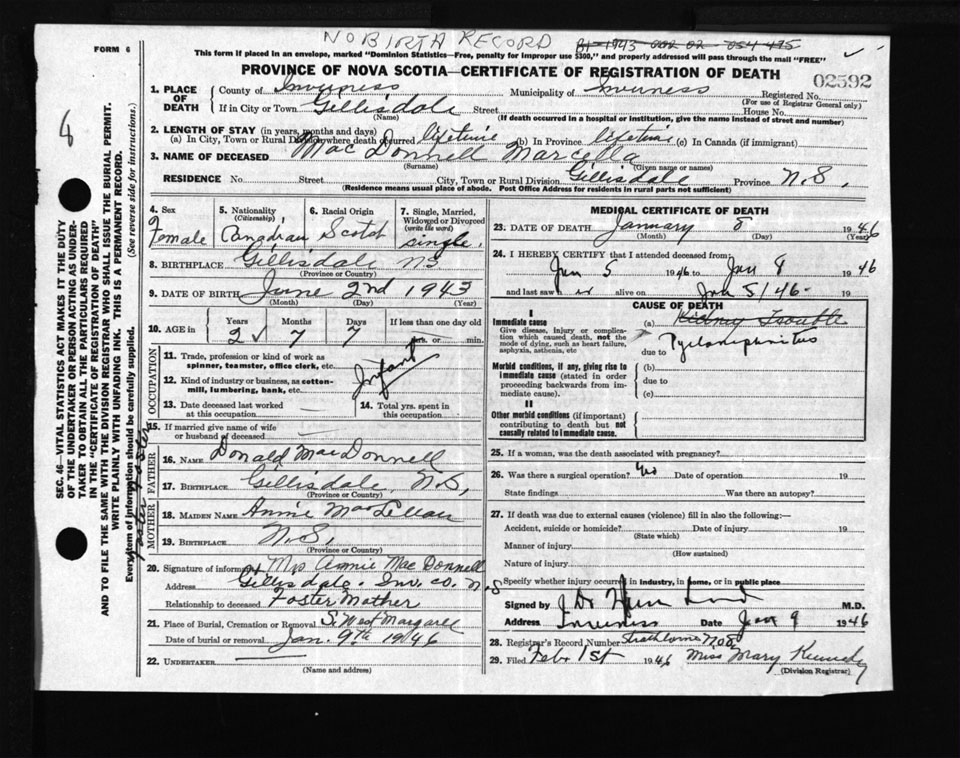 NO BIRTH RECORD
FORM 6
This form if placed in an envelope, marked "Dominion Statistics—Free, penalty for improper use $300," and properly addressed will pass through the mail "FREE"
PROVINCE OF NOVA SCOTIA—CERTIFICATE OF REGISTRATION OF DEATH
02592
8
SEC. 46—VITAL STATISTICS ACT MAKES IT THE DUTY
OF THE UNDERTAKER OR PERSON ACTING AS UNDER-
TAKER TO OBTAIN ALL THE PARTICULARS REQUIRED
IN THE "CERTIFICATE OF REGISTRATION OF DEATH"
AND TO FILE THE SAME WITH THE DIVISION REGISTRAR WHO SHALL ISSUE THE BURIAL PERMIT.
WRITE PLAINLY WITH UNFADING INK. THIS IS A PERMANENT RECORD.
Every item of information should be carefully supplied. (See reverse side for instructions.)
1. PLACE OF DEATH
County of Inverness Municipality of Inverness Registered No.
(For use of Registrar General only)
If in City or Town Gillisdale Street House No.
(Name) (If death occurred in a hospital or institution, give the name instead of street and number)
2. LENGTH OF STAY (in years, months and days)
(a) In City, Town or Rural Division where death occurred lifetime (b) In Province lifetime (c) In Canada (if immigrant)
3. NAME OF DECEASED MacDonnell Marcella
(Surname) (Given name or names)
RESIDENCE No. Street City, Town or Rural Division Gillisdale Province N.S,
(Residence means usual place of abode. Post Office Address for residents in rural parts not sufficient)
4. Sex Female
5. Nationality (Citizenship) Canadian
6. Racial Origin Scotch
7. Single, Married, Widowed or Divorced (write the word) single.
8. BIRTHPLACE Gillisdale NS
(Province or Country)
9. DATE OF BIRTH June 2nd 1943
(Month) (Day) (Year)
10. AGE in Years Months Days If less than one day old
2 7 7 hrs. or min.
OCCUPATION
11. Trade, profession or kind of work as
spinner, teamster, office clerk, etc.
12. Kind of industry or business, as cotton-
mill, lumbering, bank, etc.
Infant
13. Date deceased last worked
at this occupation
14. Total yrs. spent in
this occupation
15. If married give name of wife
or husband of deceased
FATHER
16. NAME Donald MacDonnell
17. BIRTHPLACE Gillisdale N.S,
(Province or Country)
MOTHER
18. MAIDEN NAME Annie MacLellan
19. BIRTHPLACE N.S,
(Province or Country)
20. Signature of informant Mrs Annie MacDonnell
Address Gillisdale. Inv. co. N.S
Relationship to deceased Foster Mother
21. Place of Burial, Cremation or Removal S. West Margaree
Date of burial or removal Jan. 9th 1946
22. UNDERTAKER
(Name and address)
MEDICAL CERTIFICATE OF DEATH
23. DATE OF DEATH January 8 1946
(Month) (Day) (Year)
24. I HEREBY CERTIFY that I attended deceased from
Jan 5 1946 to Jan 8 1946
and last saw alive on Jan 5/46 19
CAUSE OF DEATH
I
Immediate cause
Give disease, injury or complica-
tion which caused death, not the
mode of dying, such as heart failure,
asphyxia, asthenia, etc
(a) Kidney Trouble
due to
Morbid conditions, if any, giving rise to
immediate cause (stated in order
proceeding backwards from im-
mediate cause).
(b)
due to
(c)
II
Other morbid conditions (if important)
contributing to death but not
causally related to immediate cause.
25. If a woman, was the death associated with pregnancy?
26. Was there a surgical operation? No Date of operation 19
State findings Was there an autopsy?
27. If death was due to external causes (violence) fill in also the following:—
Accident, suicide or homicide? Date of injury 19
(State which)
Manner of injury
(How sustained)
Nature of injury
Specify whether injury occurred in industry, in home, or in public place
Signed by M.D.
Address Inverness Date Jan 9 1946
28. Registrar's Record Number Strathlorne No 8
29. Filed Feb. 1st 1946 Miss Mary Kennedy
(Division Registrar)